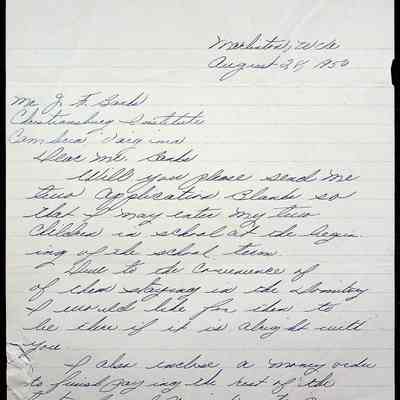 Marlinton, W Va
August 24 1950
Mr J. F. Banks
Christiansburg Institute
Cambria Virginia
Dear Mr. Banks
Will you please send me
two application Blanks so
that I may enter my two
Children in school at the begin
ing of the school term.
Due to the Convenience of
of them staying in the Dormitory
I would like for them to
be there if it is alright with
you
I also inclose a money order
to finish paying the rest of the